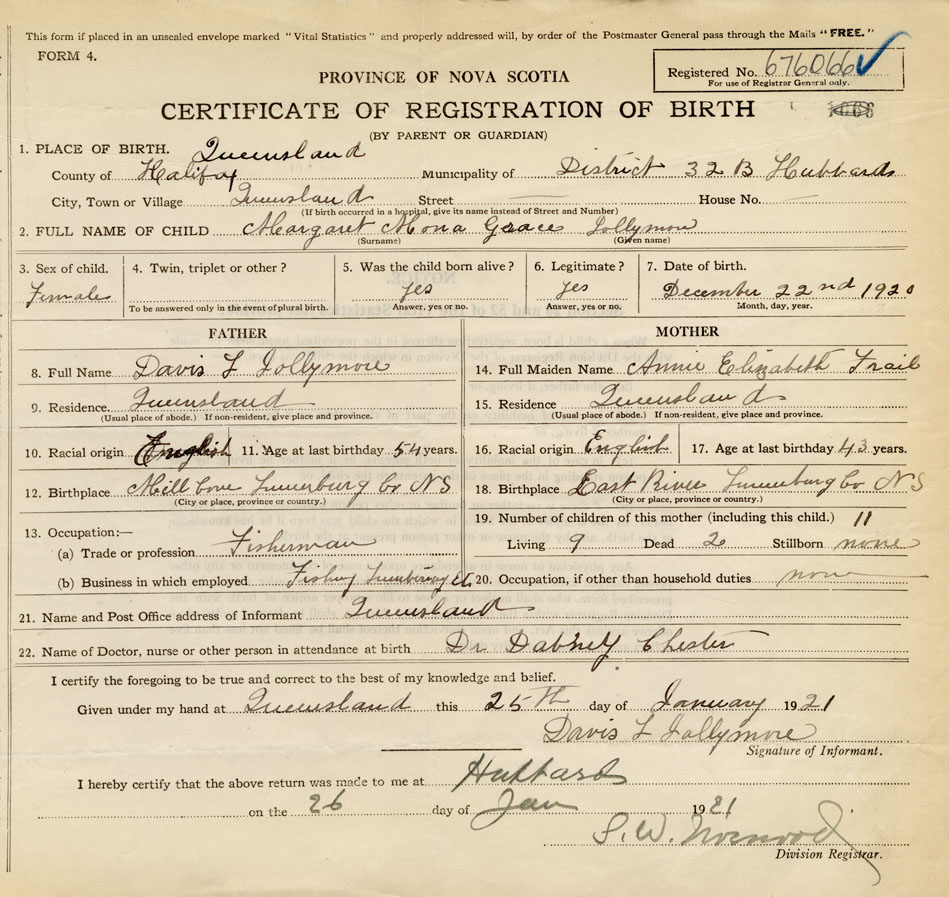 This form if placed in an unsealed envelope marked "Vital Statistics" and properly addressed will, by order of the Postmaster General pass through the Mails "FREE."
FORM 4.
Registered No. 676066
For use of Registrar General only.
PROVINCE OF NOVA SCOTIA
CERTIFICATE OF REGISTRATION OF BIRTH
(BY PARENT OR GUARDIAN)
1. PLACE OF BIRTH. Queensland
County of Halifax Municipality of District 32 B Hubbards
City, Town or Village Queensland Street House No.
(If birth occurred in a hospital, give its name instead of Street and Number)
2. FULL NAME OF CHILD Margaret Mona Grace Jollymore
(Surname) (Given name)
3. Sex of child. 4. Twin, triplet or other? 5. Was the child born alive? 6. Legitimate? 7. Date of birth.
Female yes yes December 22nd 1920
To be answered only in the event of plural birth. Answer, yes or no. Answer, yes or no. Month, day, year.
FATHER MOTHER
8. Full Name Davis L Jollymore
14. Full Maiden Name Annie Elizabeth Frail
9. Residence. Queensland
15. Residence Queensland
(Usual place of abode.) If non-resident, give place and province.
(Usual place of abode.) If non-resident, give place and province.
10. Racial origin English 11. Age at last birthday 54 years.
16. Racial origin English 17. Age at last birthday 43 years.
12. Birthplace Mill Cove Lunenburg Co NS
(City or place, province or country.)
18. Birthplace East River Lunenburg Co NS
(City or place, province or country.)
13. Occupation:—
(a) Trade or profession Fisherman
(b) Business in which employed Fishing Lumbering Etc
19. Number of children of this mother (including this child.) 11
Living 9 Dead 2 Stillborn none
20. Occupation, if other than household duties none
21. Name and Post Office address of Informant Queensland
22. Name of Doctor, nurse or other person in attendance at birth Dr Dabney Chester
I certify the foregoing to be true and correct to the best of my knowledge and belief.
Given under my hand at Queensland this 25th day of January 1921
Davis L Jollymore
Signature of Informant.
I hereby certify that the above return was made to me at Hubbards
on the 26 day of Jan 1921
S. W. Norwood
Division Registrar.